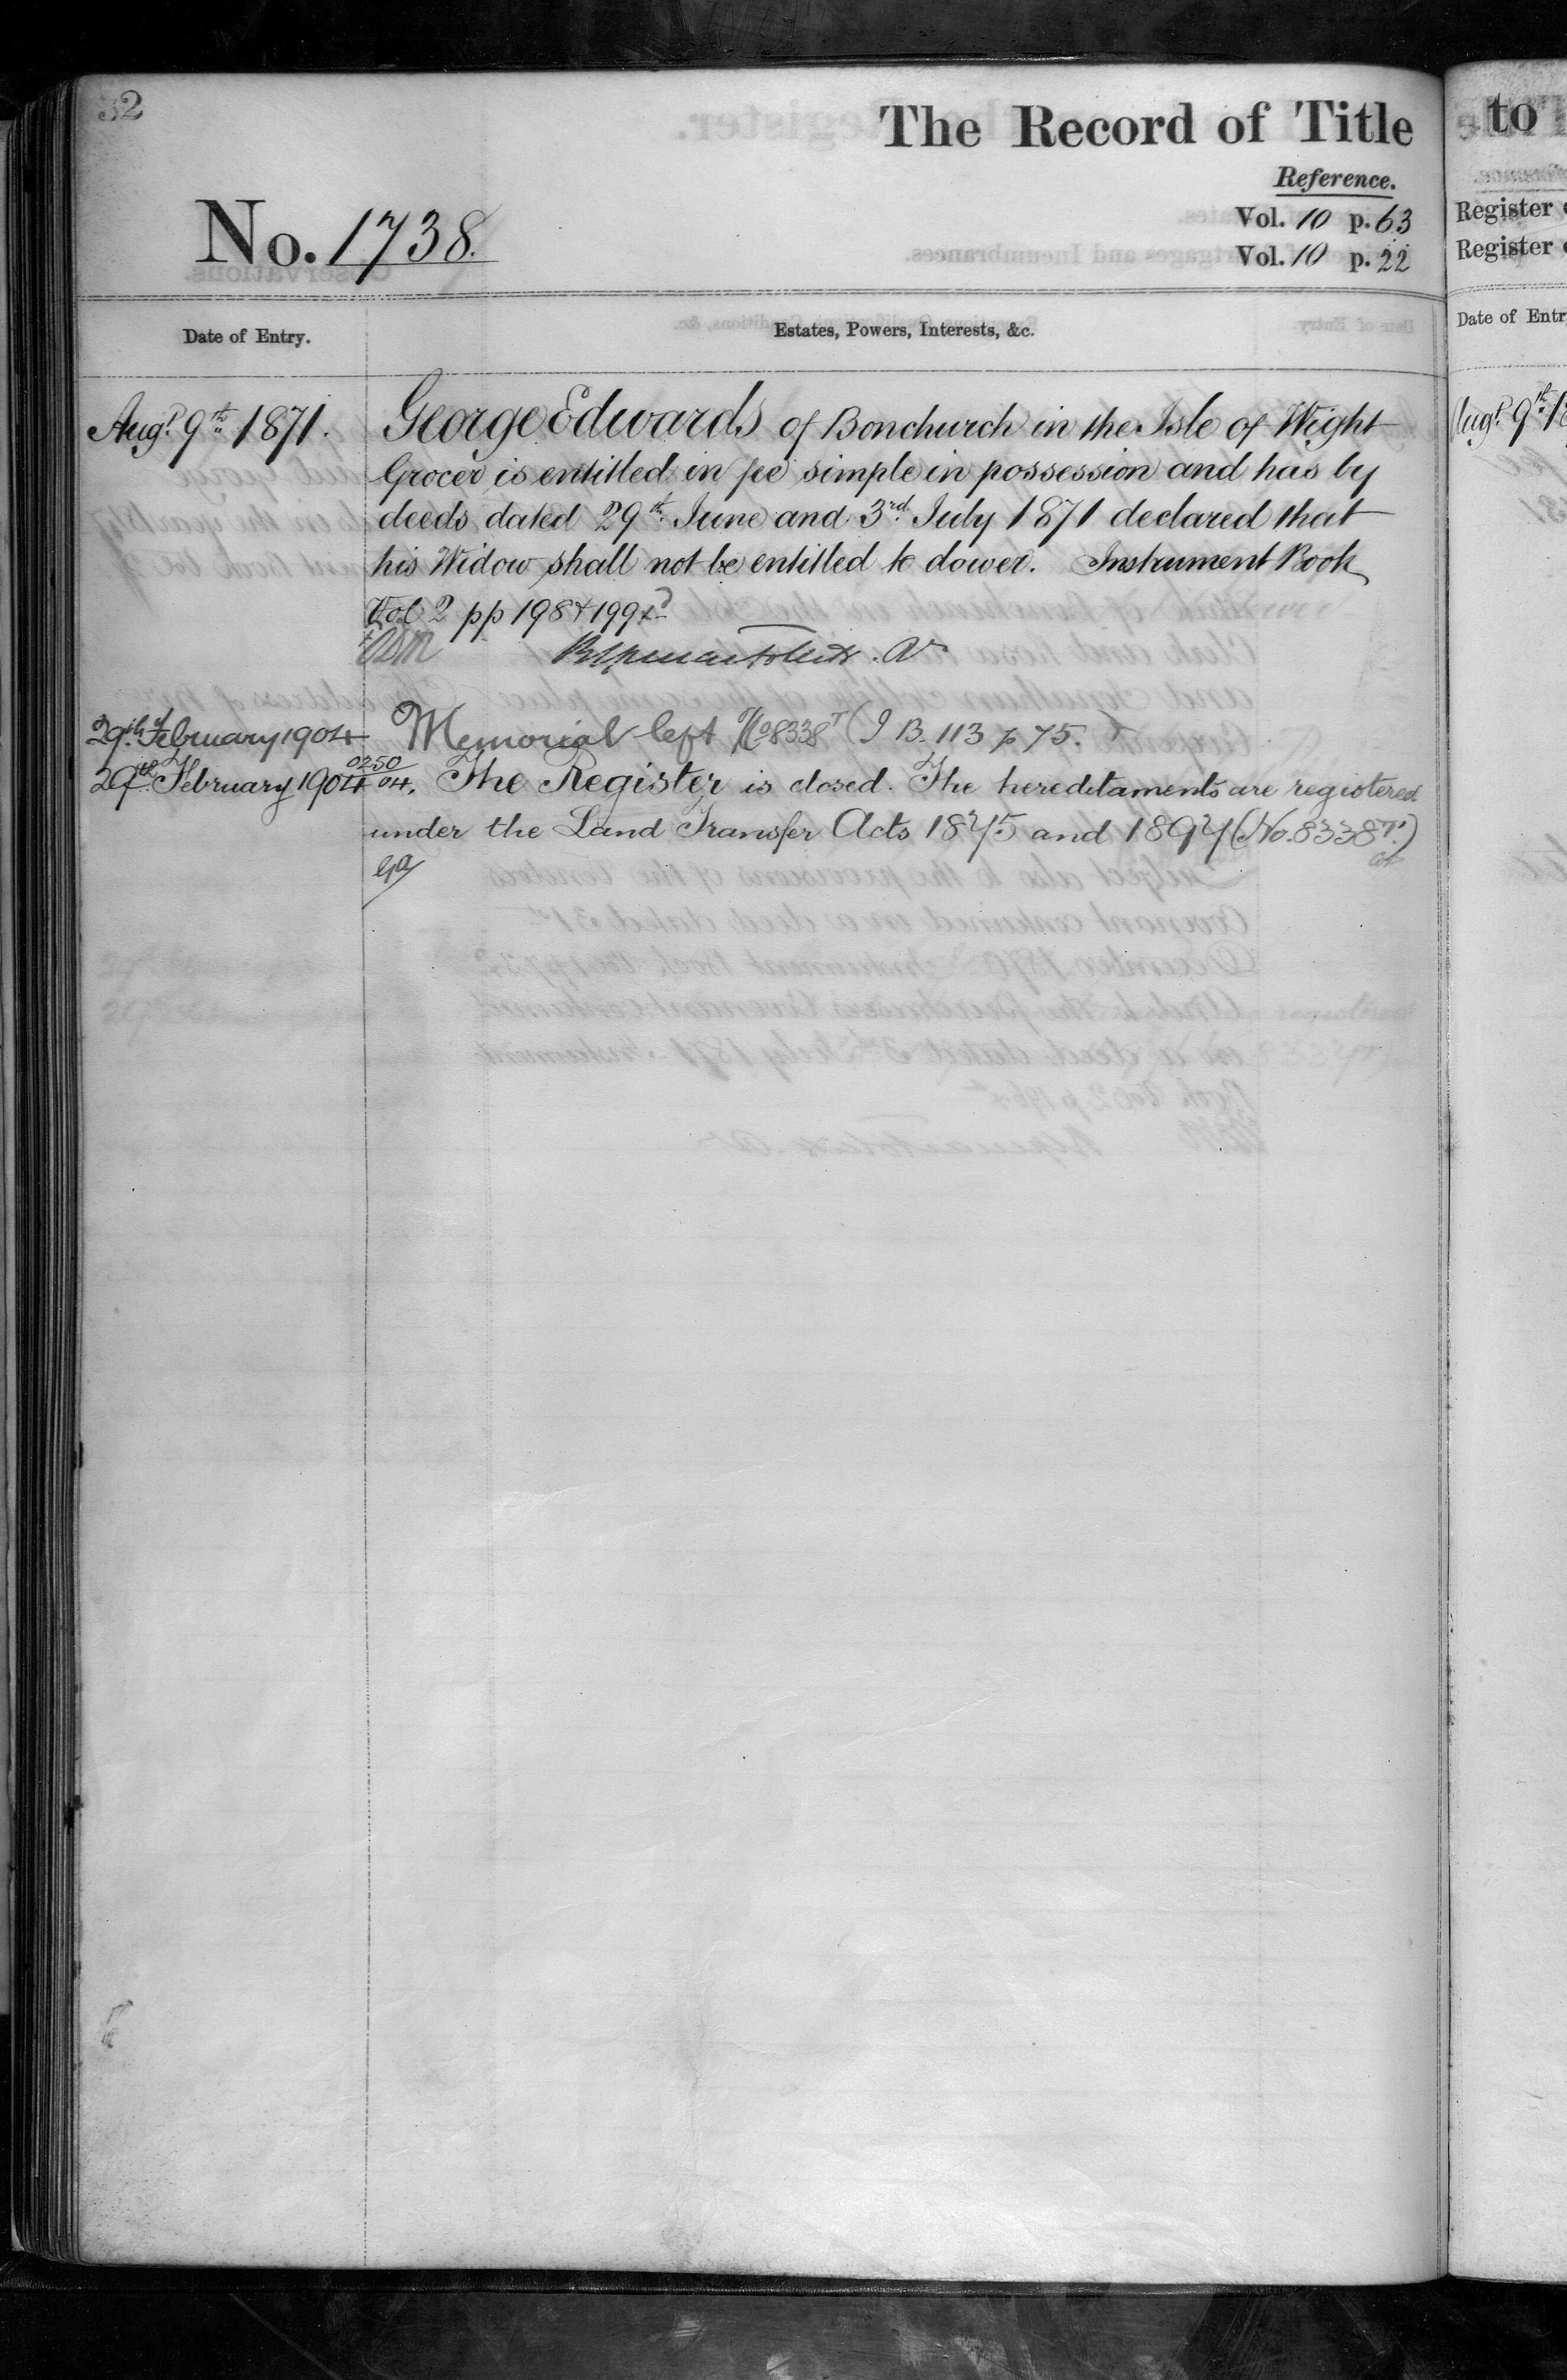 32
The Record of Title
Reference.
No. 1738.
Vol. 10 p. 63
Vol. 10 p. 22
Date of Entry.
Estates, Powers, Interests, &c.
Augt. 9th 1871.
George Edwards of Bonchurch in the Isle of Wight
Grocer is entitled in fee simple in possession and has by
deeds dated 29th June and 3rd July 1871 declared that
his Widow shall not be entitled to dower. Instrument Book
Vol 2 pp 198 & 199
29th February 1904
Memorial left No 8338T (I B. 113 p 75.)
29th February 1904
0250
04.
The Register is closed. The hereditaments are registered
under the Land Transfer Acts 1875 and 1897 (No. 8338T.)
to
Register
Register
Date of Entr
Augt. 9th 18